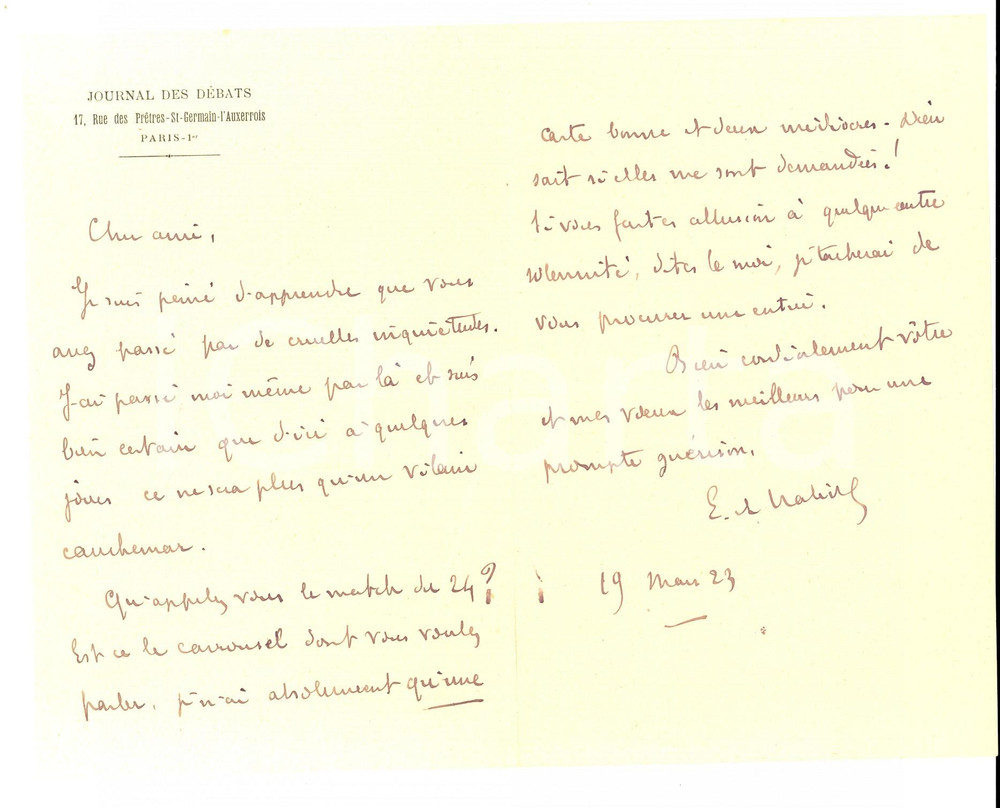 JOURNAL DES DÉBATS
17, Rue des Prêtres-St-Germain-l'Auxerrois
PARIS-1er
Cher ami,
Je suis peiné d'apprendre que vous
avez passé par de cruelles inquiétudes.
J'ai passé moi même par là et suis
bien certain que d'ici à quelques
jours ce ne sera plus qu'un vilain
cauchemar.
Qu'appelez vous le match du 24?
Est ce le carrousel dont vous voulez
parler. je n'ai absolument qu'une
carte bonne et deux médiocres. Dieu
sait si elles me sont demandées!
Si vous faites allusion à quelque autre
solennité, dites le moi, je tâcherai de
vous procurer une entrée.
Bien cordialement vôtre
et mes voeux les meilleurs pour une
prompte guérison.
E. de
19 Mars 23